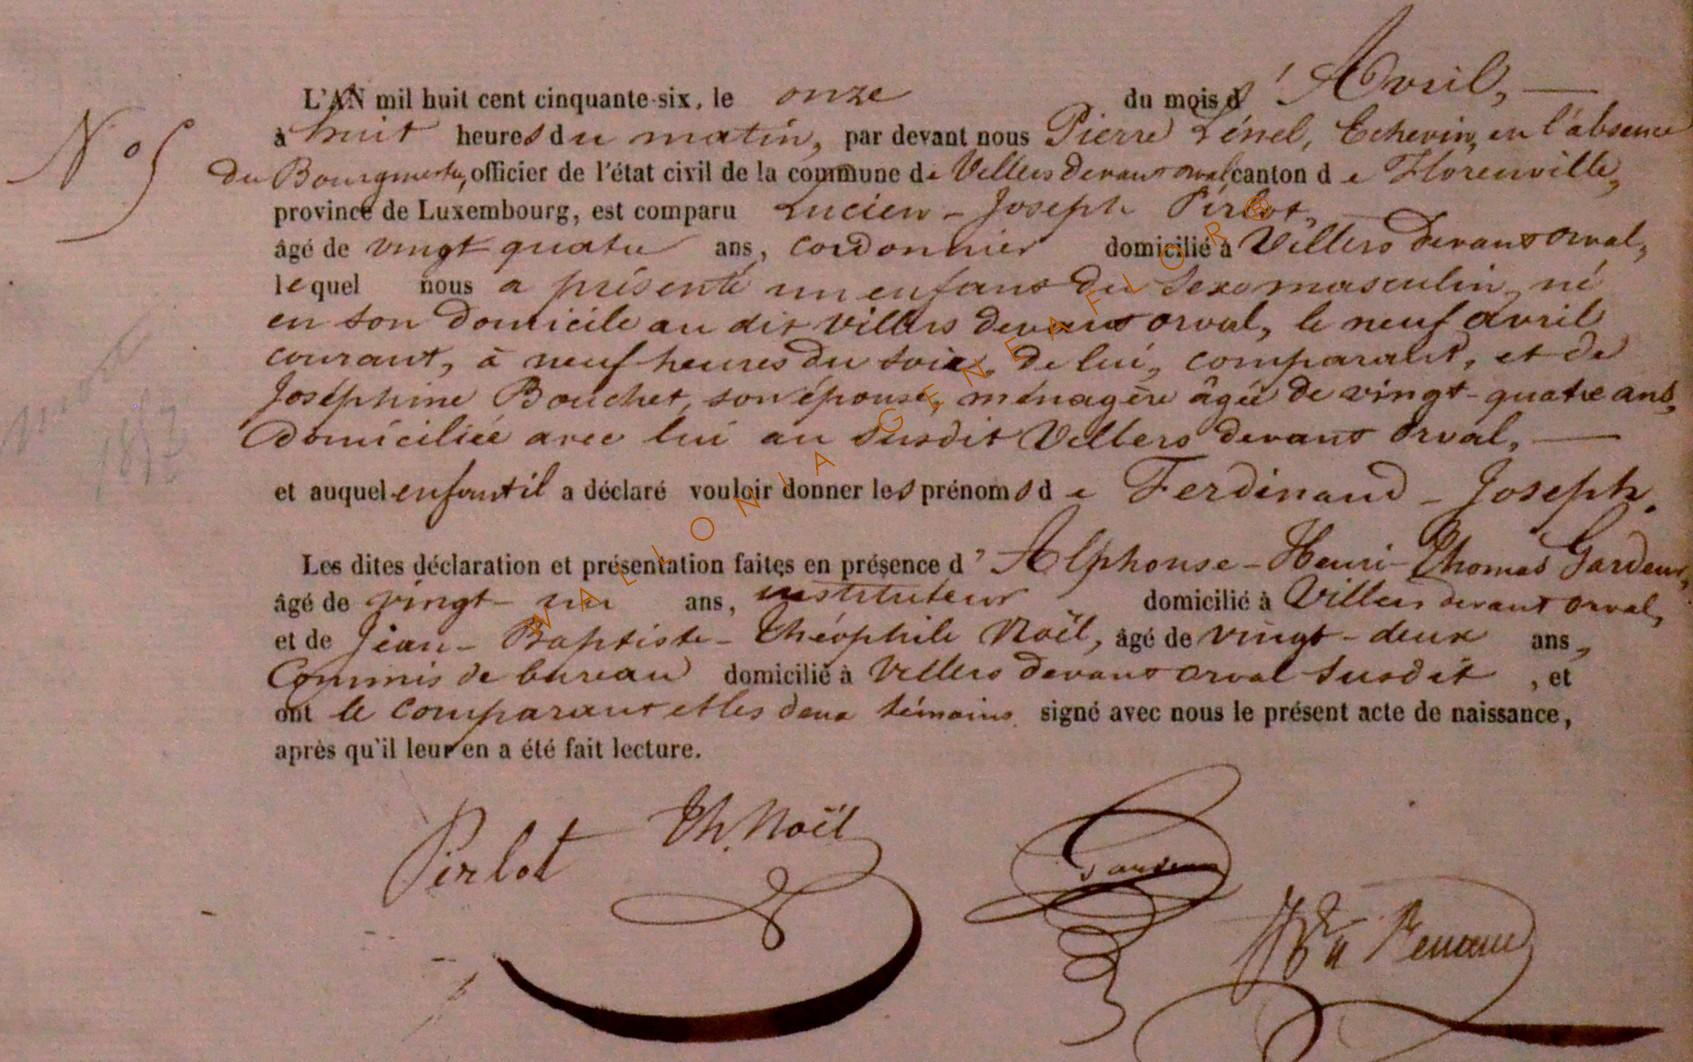 L'AN mil huit cent cinquante-six, le onze du mois d'Avril,
N° 5
à huit heures du matin, par devant nous Pierre Lénel, Echevin, en l'absence
du Bourgmestre, officier de l'état civil de la commune de Villers devant orval canton de Florenville,
province de Luxembourg, est comparu Lucien-Joseph Pirlot,
âgé de vingt quatre ans, cordonnier domicilié à Villers devant orval,
lequel nous a présenté un enfant du sexe masculin, né
en son domicile au dit Villers devant orval, le neuf avril
courant, à neuf heures du soir, de lui, comparant, et de
Joséphine Bouchet, son épouse, ménagère âgée de vingt-quatre ans,
domiciliée avec lui au susdit Villers devant orval,
et auquel enfant il a déclaré vouloir donner les prénoms de Ferdinand-Joseph.
Les dites déclaration et présentation faites en présence d'Alphonse-Henri-Thomas Gardeur,
âgé de vingt-un ans, instituteur domicilié à Villers devant orval,
et de Jean-Baptiste-Théophile Noël, âgé de vingt-deux ans,
Commis de bureau domicilié à Villers devant orval susdit, et
ont le comparant et les deux témoins signé avec nous le présent acte de naissance,
après qu'il leur en a été fait lecture.
Pirlot Th. Noël Gardeur
WALLONIA GENEAFLOR®